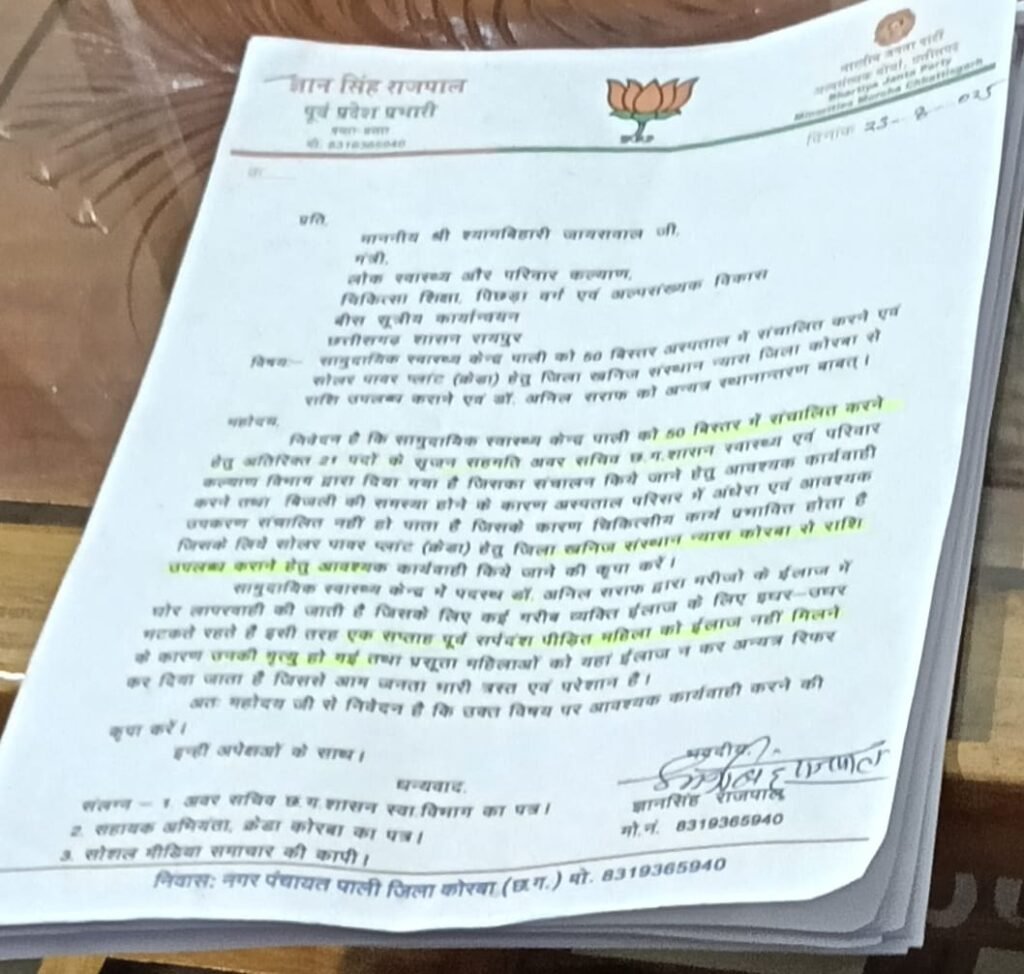 ज्ञान सिंह राजपाल
पूर्व प्रदेश प्रभारी
मो. 8319365940
भारतीय जनता पार्टी
अल्पसंख्यक मोर्चा, छत्तीसगढ़
Bhartiya Janta Party
Minorities Morcha Chhattisgarh
दिनांक 23-8-025
क्र.
प्रति,
माननीय श्री श्यामबिहारी जायसवाल जी,
मंत्री,
लोक स्वास्थ्य और परिवार कल्याण,
चिकित्सा शिक्षा, पिछड़ा वर्ग एवं अल्पसंख्यक विकास
बीस सूत्रीय कार्यान्वयन
छत्तीसगढ़ शासन रायपुर
विषयः- सामुदायिक स्वास्थ्य केन्द्र पाली को 50 बिस्तर अस्पताल में संचालित करने एवं
सोलर पावर प्लांट (क्रेडा) हेतु जिला खनिज संस्थान न्यास जिला कोरबा से
राशि उपलब्ध कराने एवं डॉ. अनिल सराफ को अन्यत्र स्थानान्तरण बाबत्।
महोदय,
निवेदन है कि सामुदायिक स्वास्थ्य केन्द पाली को 50 बिस्तर में संचालित करने
हेतु अतिरिक्त 21 पदों के सृजन सहमति अवर सचिव छ.ग.शासन स्वास्थ्य एवं परिवार
कल्याण विभाग द्वारा दिया गया है जिसका संचालन किये जाने हेतु आवश्यक कार्यवाही
करने तथा बिजली की समस्या होने के कारण अस्पताल परिसर में अंधेरा एवं आवश्यक
उपकरण संचालित नहीं हो पाता है जिसके कारण चिकित्सीय कार्य प्रभावित होता है
जिसके लिये सोलर पावर प्लांट (क्रेडा) हेतु जिला खनिज संस्थान न्यास कोरबा से राशि
उपलब्ध कराने हेतु आवश्यक कार्यवाही किये जाने की कृपा करें।
सामुदायिक स्वास्थ्य केन्द्र में पदस्थ डॉ. अनिल सराफ द्वारा मरीजो के ईलाज में
घोर लापरवाही की जाती है जिसके लिए कई गरीब व्यक्ति ईलाज के लिए इधर-उधर
भटकते रहते है इसी तरह एक सप्ताह पूर्व सर्पदंश पीड़ित महिला को ईलाज नहीं मिलने
के कारण उनकी मृत्यु हो गई तथा प्रसूता महिलाओं को यहां ईलाज न कर अन्यत्र रिफर
कर दिया जाता है जिससे आम जनता भारी त्रस्त एवं परेशान है।
अतः महोदय जी से निवेदन है कि उक्त विषय पर आवश्यक कार्यवाही करने की
कृपा करें।
इन्हीं अपेक्षाओं के साथ।
धन्यवाद.
भवदीय
ज्ञानसिंह राजपाल
मो.नं. 8319365940
संलग्न - 1. अवर सचिव छ.ग.शासन स्वा.विभाग का पत्र।
2. सहायक अभियंता, क्रेडा कोरबा का पत्र।
3. सोशल मीडिया समाचार की कापी।
निवास: नगर पंचायत पाली जिला कोरबा (छ.ग.) मो. 8319365940